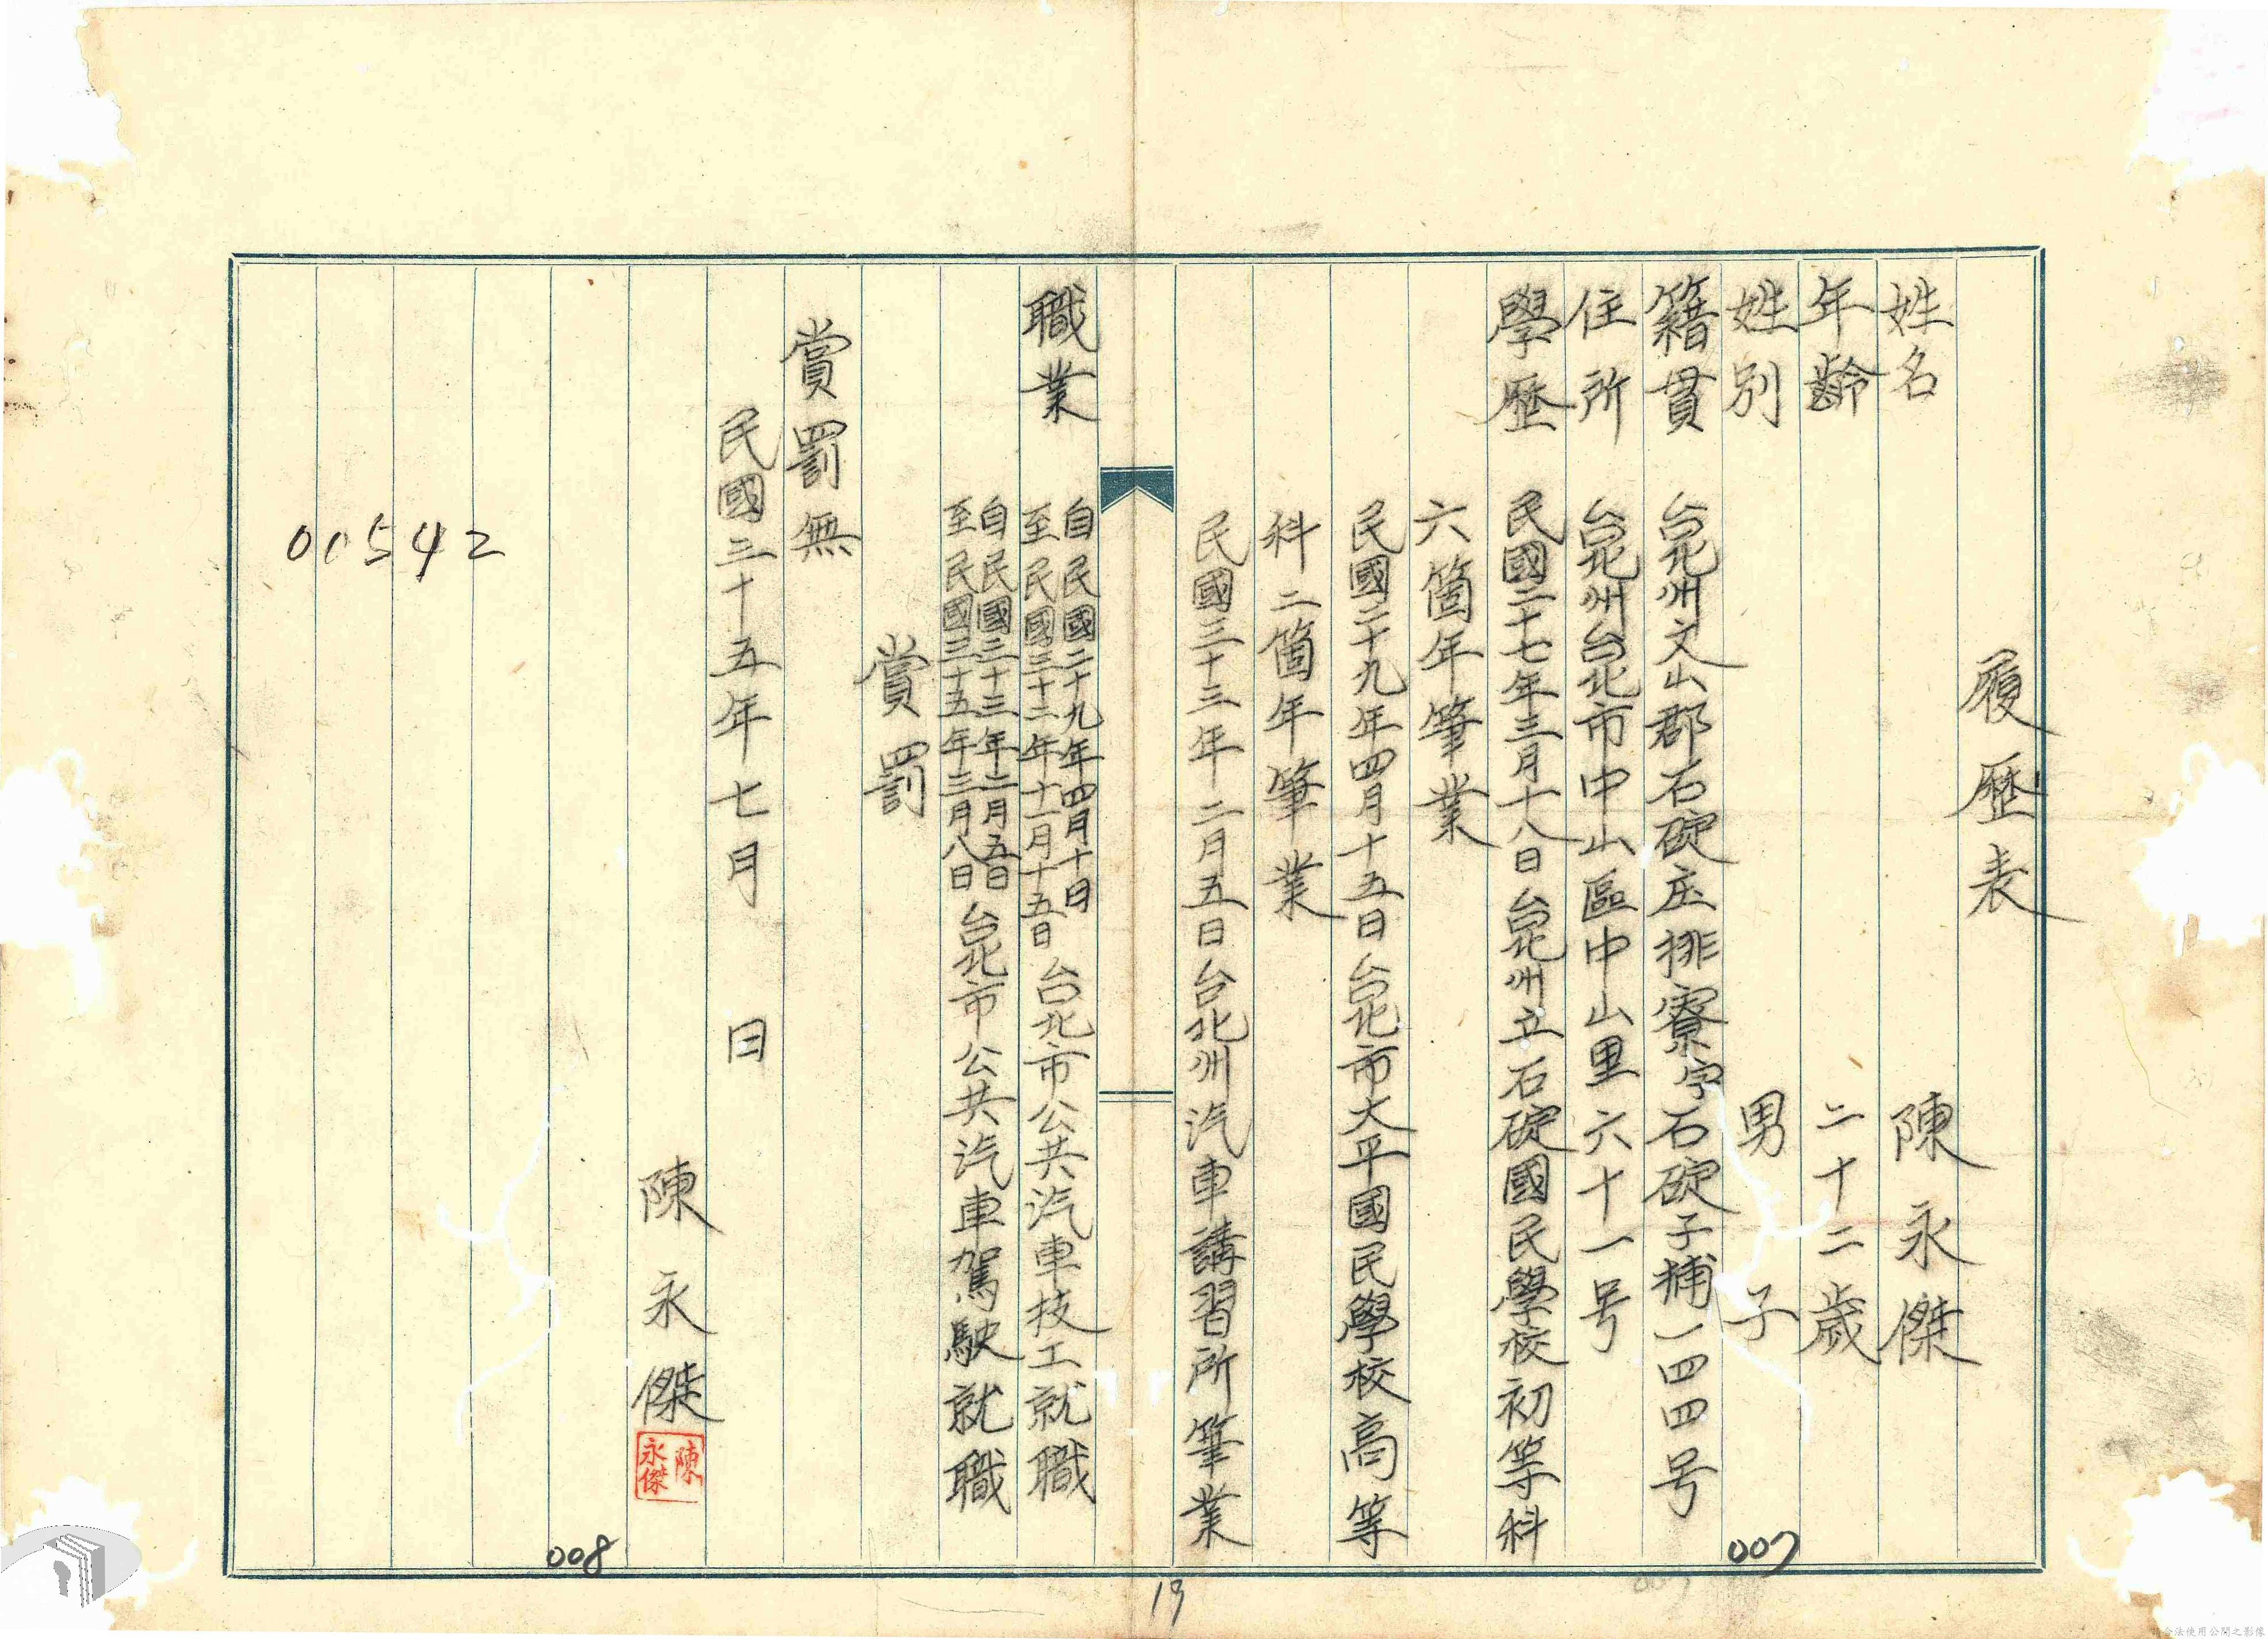 履歷表
姓名 陳永傑
年齡 二十二歲
姓別 男子
籍貫 台北州文山郡石碇庄排寮字石碇子補一四四号
住所 台北州台北市中山區中山里六十一号
學歷 民國二十七年三月十八日台北州立石碇國民學校初等科
六箇年筆業
民國二十九年四月十五日台北市大平國民學校高等
科二箇年筆業
民國三十三年二月五日台北州汽車講習所筆業
職業 自民國二十九年四月十日
至民國三十二年十一月十五日 台北市公共汽車技工就職
自民國三十三年二月五日
至民國三十五年三月八日 台北市公共汽車駕駛就職
賞罰
賞罰無
民國三十五年七月 日
陳永傑
陳永傑
00542
008
007
19